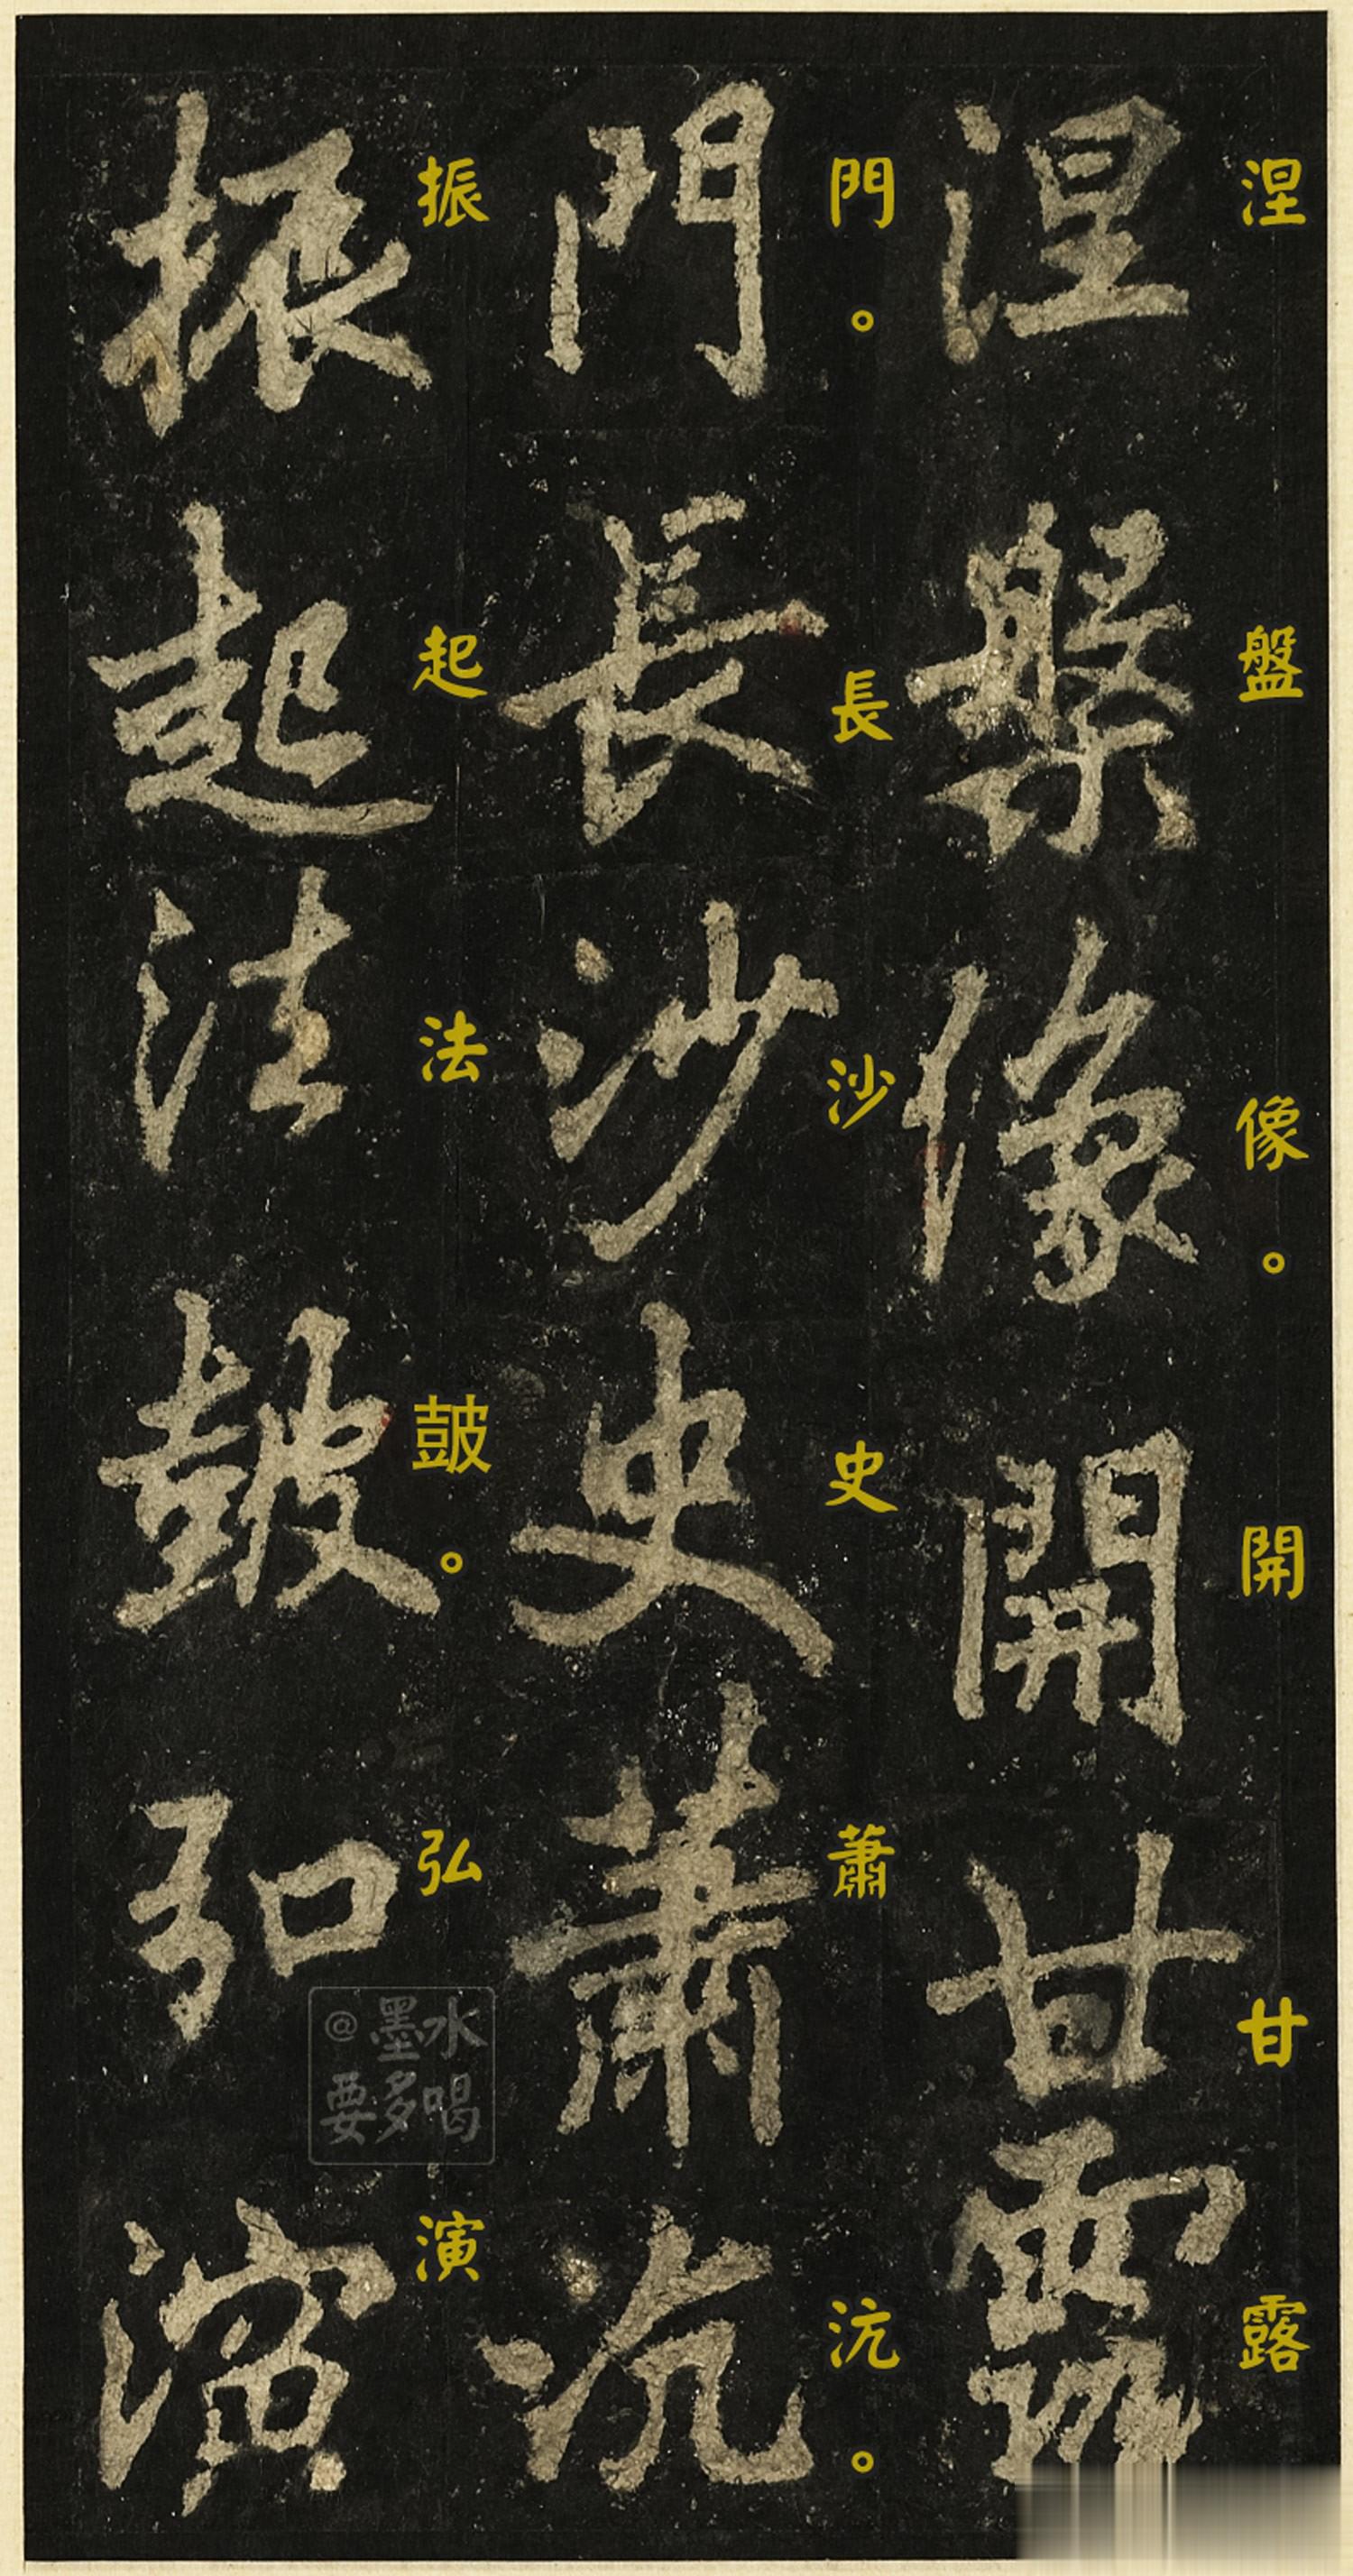 涅槃像開甘露
涅盤像。開甘露
門長沙史蕭沆
門。長沙史蕭沆。
振起法皷弘演
振起法皷。弘演
@墨水
要多喝